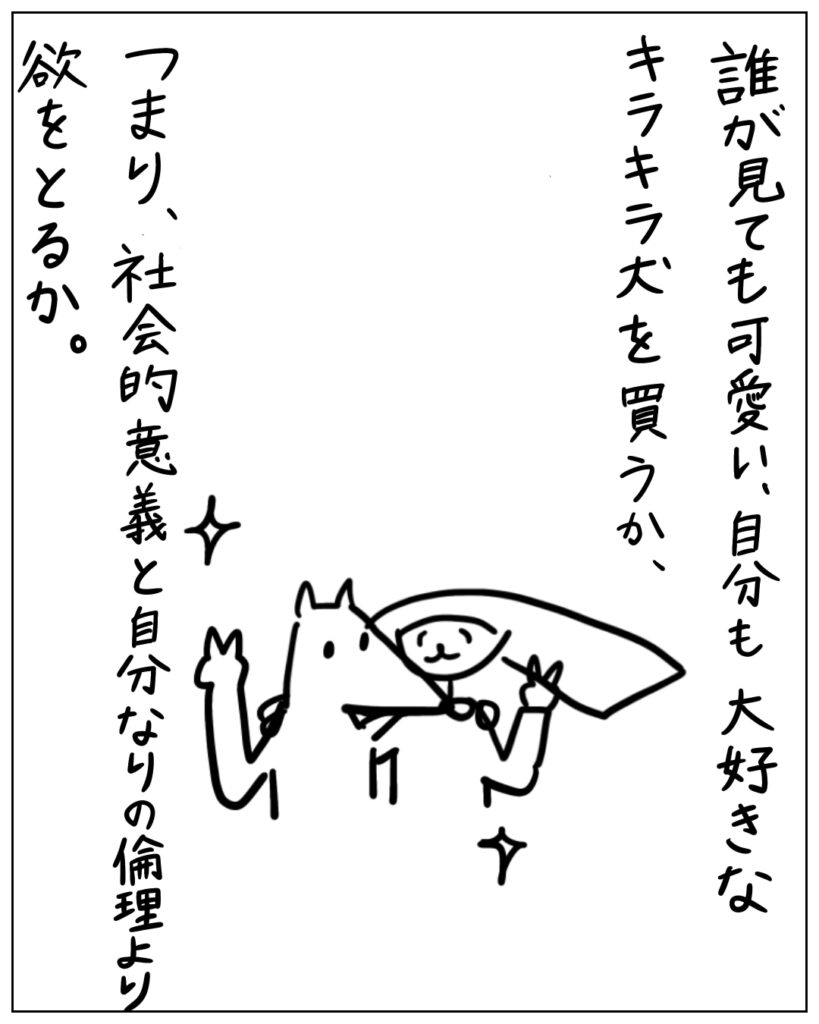 誰が見ても可愛い、自分も大好きな
キラキラ犬を買うか、
つまり、社会的意義と自分なりの倫理より
欲をとるか。